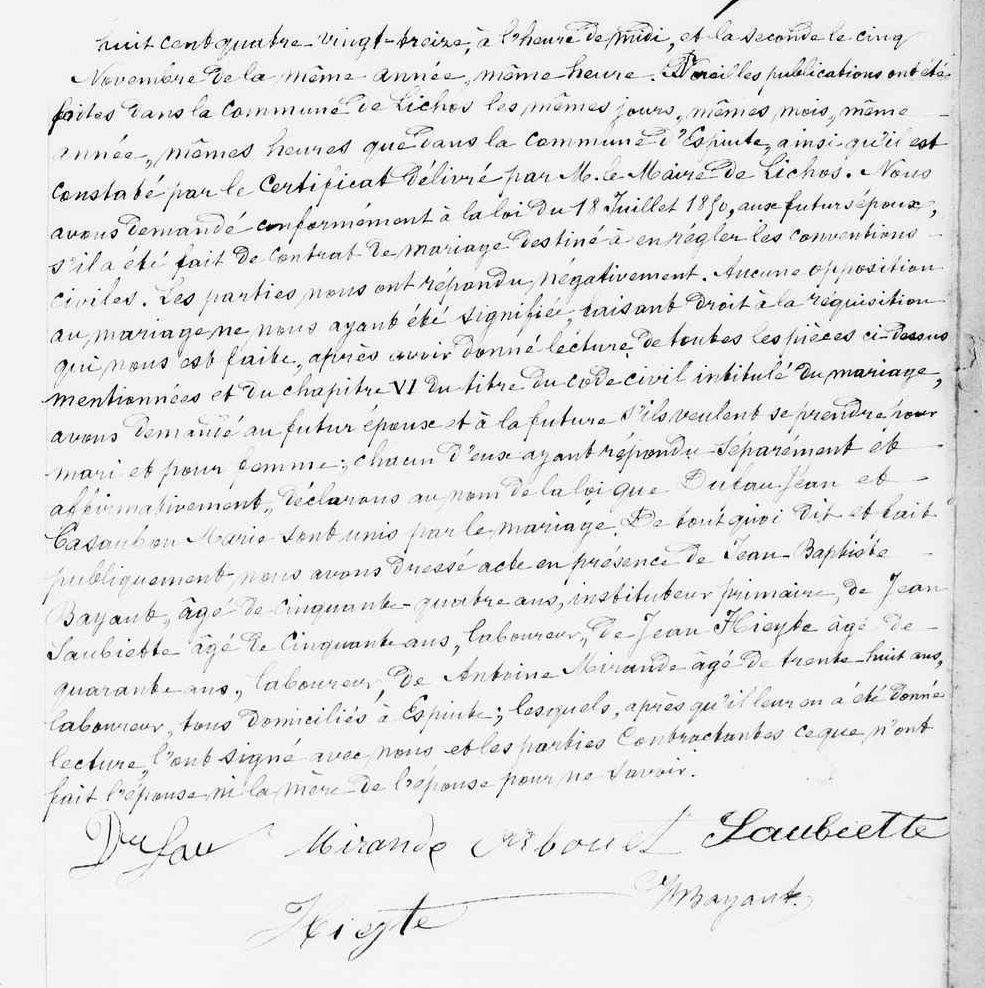 huit cent quatre-vingt-treize, à l'heure de midi, et la seconde le cinq
Novembre de la même année, même heure. Pareilles publications ont été
faites dans la commune de Lichos les mêmes jours, mêmes mois, même
année, mêmes heures que dans la commune d'Espiute, ainsi qu'il est
constaté par le certificat délivré par M. le Maire de Lichos. Nous
avons demandé conformément à la loi du 18 Juillet 1850, aux futurs époux,
s'il a été fait de contrat de mariage destiné à en régler les conventions
civiles. Les parties nous ont répondu négativement. Aucune opposition
au mariage ne nous ayant été signifiée, faisant droit à la réquisition
qui nous est faite, après avoir donné lecture de toutes les pièces ci-dessus
mentionnées et du chapitre VI du titre du code civil intitulé du mariage,
avons demandé au futur époux et à la future s'ils veulent se prendre pour
mari et pour femme; chacun d'eux ayant répondu séparément et
affirmativement, déclarons au nom de la loi que Dufau Jean et
Casaubon Marie sont unis par le mariage. De tout quoi dit et fait
publiquement nous avons dressé acte en présence de Jean-Baptiste
Bayaut, âgé de cinquante-quatre ans, instituteur primaire, de Jean
Saubiette âgé de cinquante ans, laboureur, de Jean Hieyte âgé de
quarante ans, laboureur, de Antoine Mirande âgé de trente-huit ans,
laboureur, tous domiciliés à Espiute; lesquels, après qu'il leur en a été donné
lecture, l'ont signé avec nous et les parties contractantes ce que n'ont
fait l'épouse ni la mère de l'épouse pour ne savoir.
Dufau Mirande Arbouet Saubiette
Hieyte Bayaut